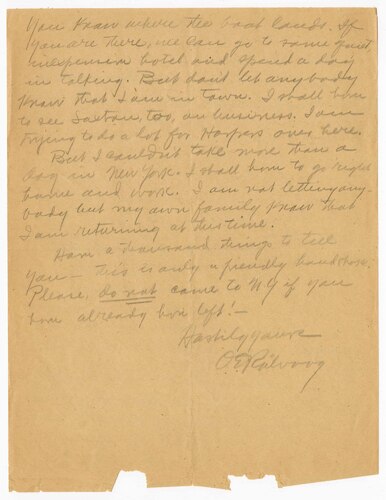 you know where the boat lands. If
you are there, we can go to some quiet
inexpensive hotel and spend a day
in talking. But dont let anybody
know that I am in town. I shall have
to see Saxton, too, on business. I am
trying to do a lot for Harpers over here.
But I couldn't take more than a
day in New York. I shall have to go right
home and work. I am not letting any-
body but my own family know that
I am returning at this time.
Have a thousand things to tell
you — this is only a friendly handshake.
Please, do not come to NY if you
have already left! —
Hastily yours
O E Rölvaag